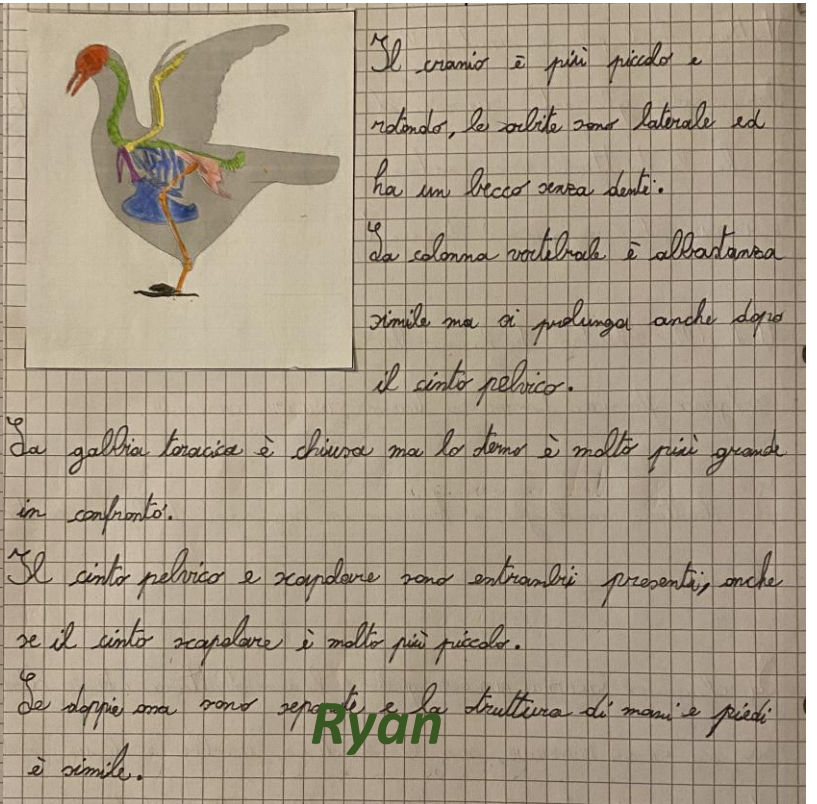 Il cranio è più piccolo e
rotondo, le orbite sono laterale ed
ha un becco senza denti.
La colonna vertebrale è abbastanza
simile ma si prolunga anche dopo
il cinto pelvico.
La gabbia toracica è chiusa ma lo sterno è molto più grande
in confronto.
Il cinto pelvico e scapolare sono entrambi presenti, anche
se il cinto scapolare è molto più piccolo.
Le doppie ossa sono separate e la struttura di mani e piedi
è simile.
Ryan